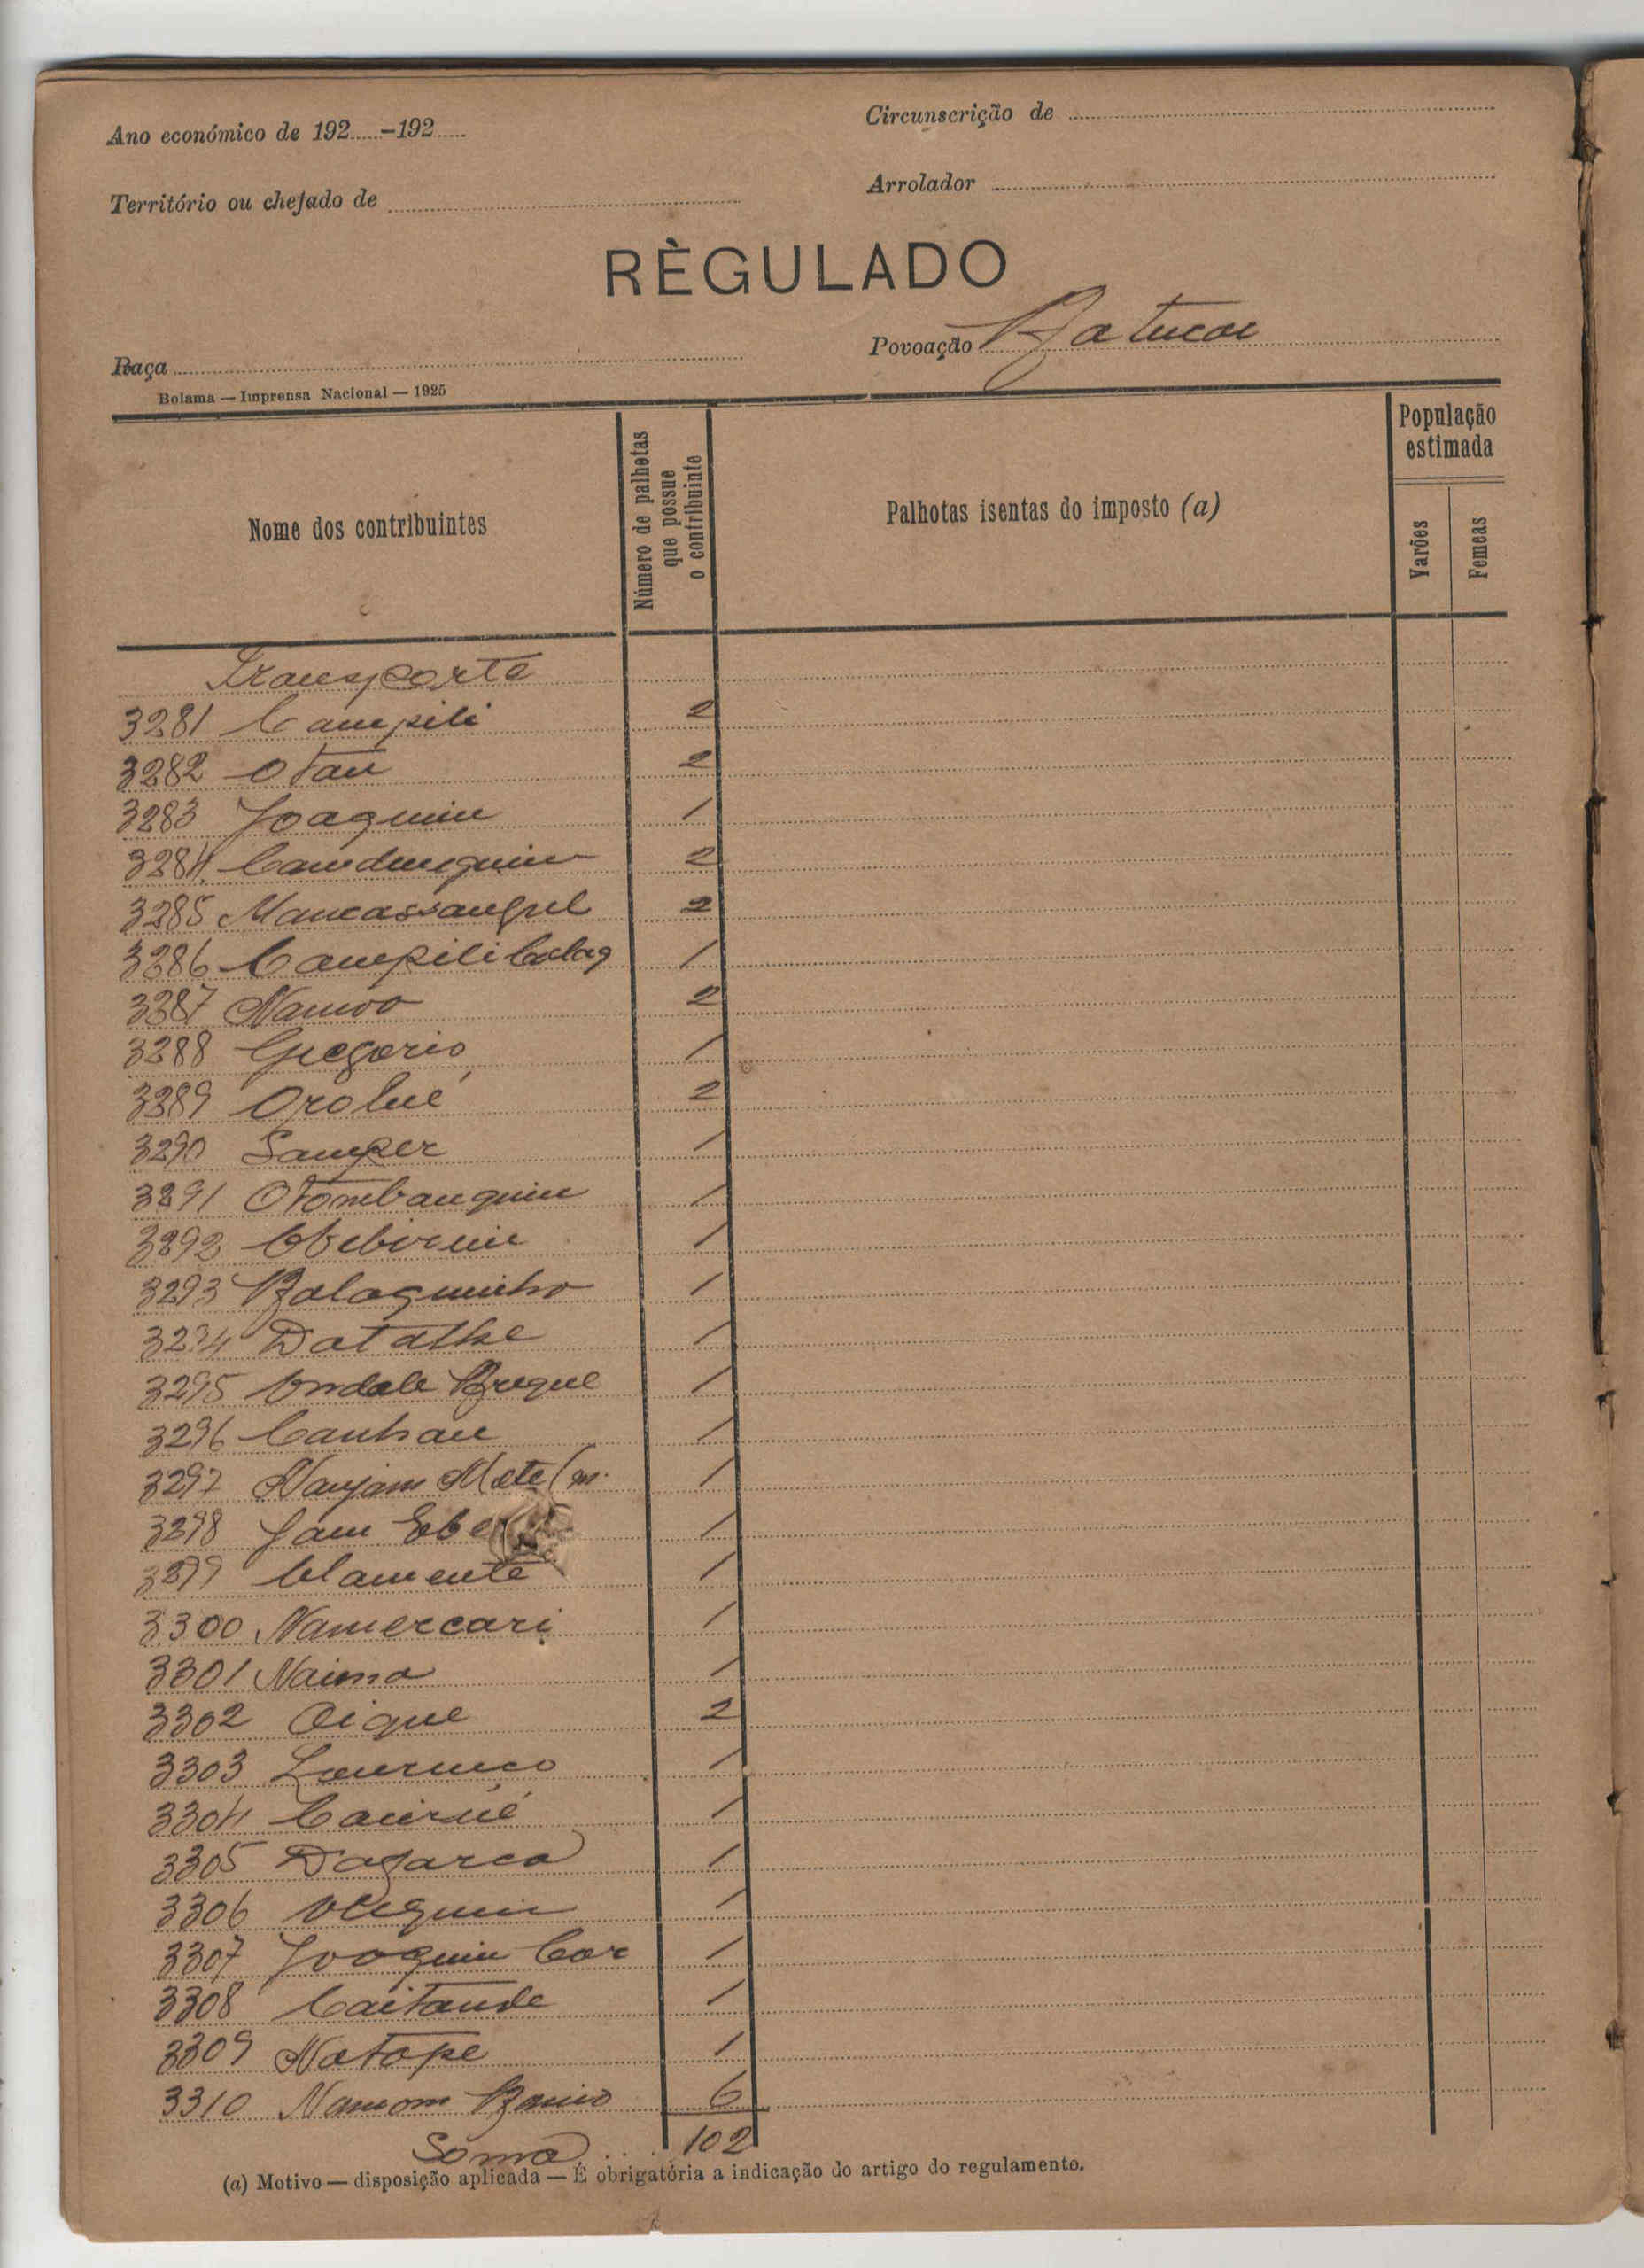 Ano económico de 192.....-192.....
Circunscrição de
Território ou chefado de
Arrolador
RÈGULADO
Raça
Povoação Batucar
Bolama — Imprensa Nacional — 1925
Nome dos contribuintes
Número de palhotas que possue o contribuinte
Palhotas isentas do imposto (a)
População estimada
Varões
Femeas
Transporte
3281 Campili 2
3282 Otau 2
3283 Joaquim 1
3284 2
3285 2
3286 Campili 1
3287 Namoo 2
3288 Gregorio 1
3289 2
3290 Samper 1
3291 Otombanquim 1
3292 1
3293 Balaguinho 1
3294 1
3295 1
3296 Canhau 1
3297 1
3298 1
3299 Clamente 1
3300 Namercari 1
3301 Naima 1
3302 Oique 2
3303 Lourenco 1
3304 1
3305 1
3306 1
3307 Joaquim Cor 1
3308 1
3309 Natope 1
3310 6
Sôma 102
(a) Motivo — disposição aplicada — É obrigatória a indicação do artigo do regulamento.